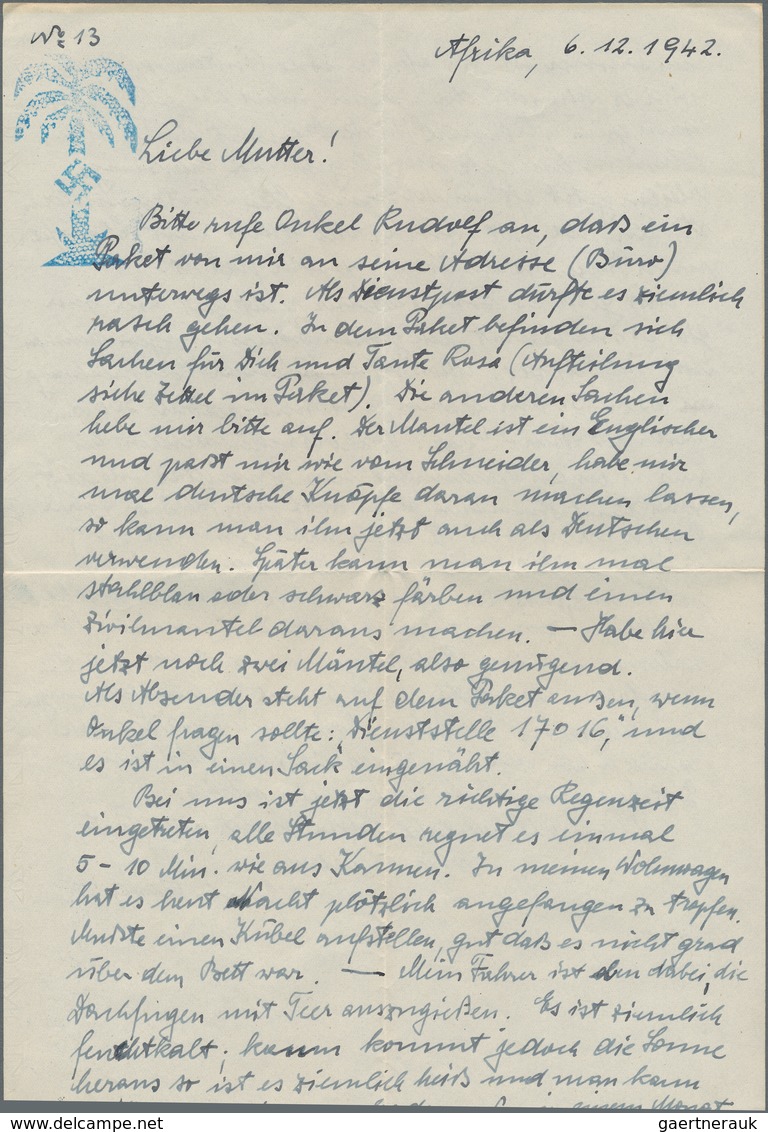 No 13
Afrika, 6.12.1942.
Liebe Mutter!
Bitte rufe Onkel Rudolf an, daß ein
Paket von mir an seine Adresse (Büro)
unterwegs ist. Als Dienstpost dürfte es ziemlich
rasch gehen. In dem Paket befinden sich
Sachen für Dich und Tante Rosa (Aufteilung
siehe Zettel im Paket). Die anderen Sachen
hebe mir bitte auf. Der Mantel ist ein Englischer
und paßt mir wie vom Schneider, habe mir
mal deutsche Knöpfe daran machen lassen,
so kann man ihn jetzt auch als Deutschen
verwenden. Später kann man ihn mal
stahlblau oder schwarz färben und einen
Zivilmantel daraus machen. — Habe hier
jetzt noch zwei Mäntel, also genügend.
Als Absender steht auf dem Paket außen, wenn
Onkel fragen sollte: "Dienststelle 17016," und
es ist in einen Sack eingenäht.
Bei uns ist jetzt die richtige Regenzeit
eingetreten, alle Stunden regnet es einmal
5-10 Min. wie aus Kannen. In meinen Wohnwagen
hat es heut Nacht plötzlich angefangen zu tropfen.
Mußte einen Kübel aufstellen, gut daß es nicht grad
über dem Bett war. — Mein Fahrer ist eben dabei, die
Dachfugen mit Teer auszugießen. Es ist ziemlich
feuchtkalt; kaum kommt jedoch die Sonne
heraus so ist es ziemlich heiß und man kann
in einem Monat
www.delcampe.net
gaertnerauk